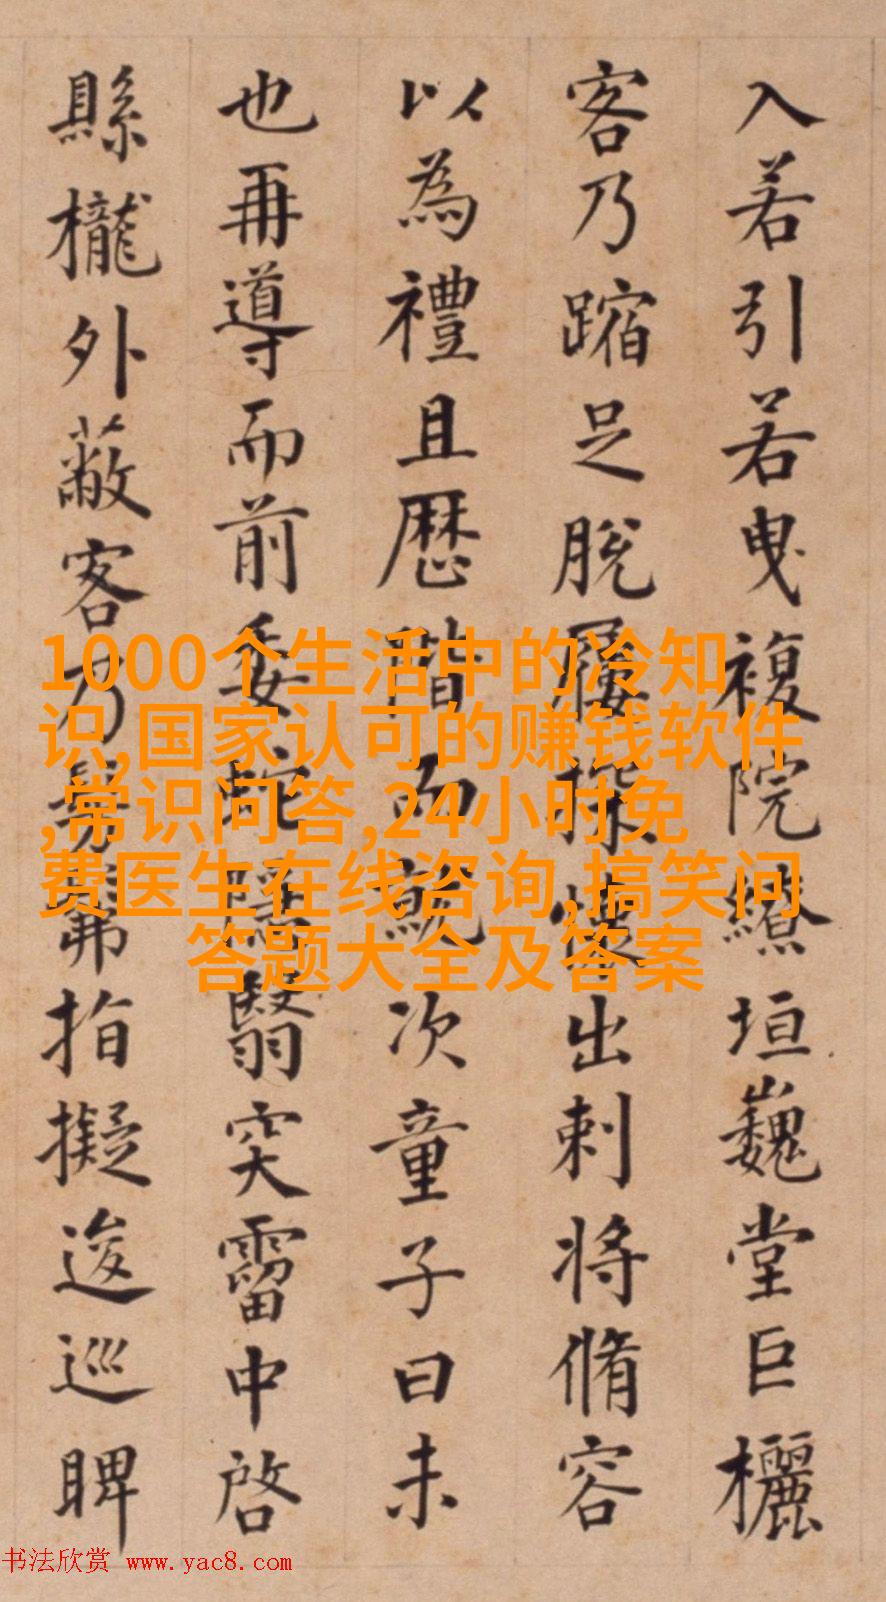 入若引若曳複院繚垣巍堂巨欐
客乃蹜足脫屨探懷出刺將脩容
以為禮且歷階而就次童子曰未
也再導而前委蛇隱翳突霤中啓
縣櫳外蔽客乃髣髴指擬逡巡睥
1000个生活中的冷知
识,国家认可的赚钱软件
,常识问答,24小时免
费医生在线咨询,搞笑问
答题大全及答案
书法欣赏 www.yac8.com